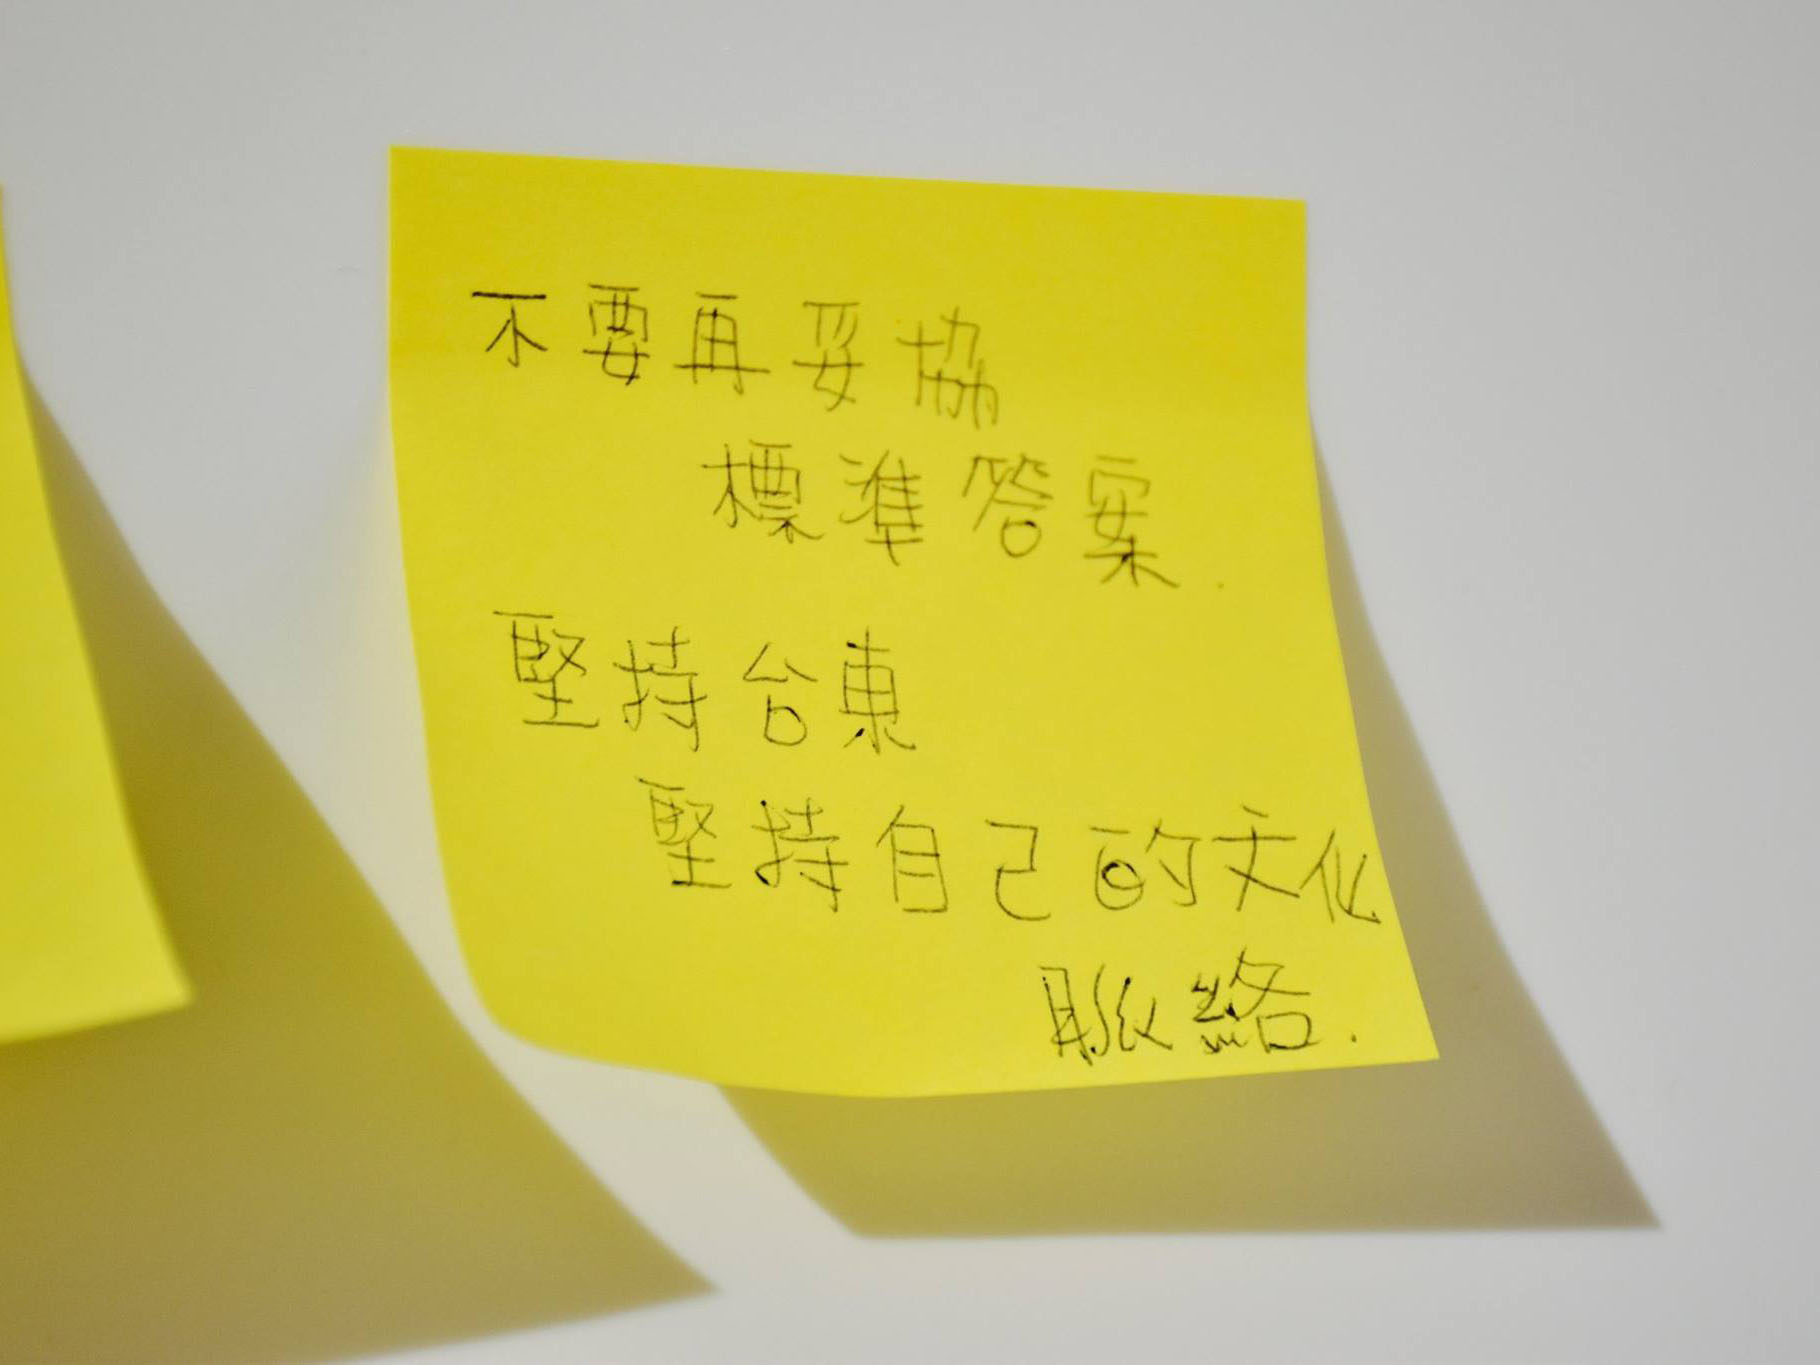 不要再妥協
標準答案.
堅持台東
堅持自己的文化
脈絡.